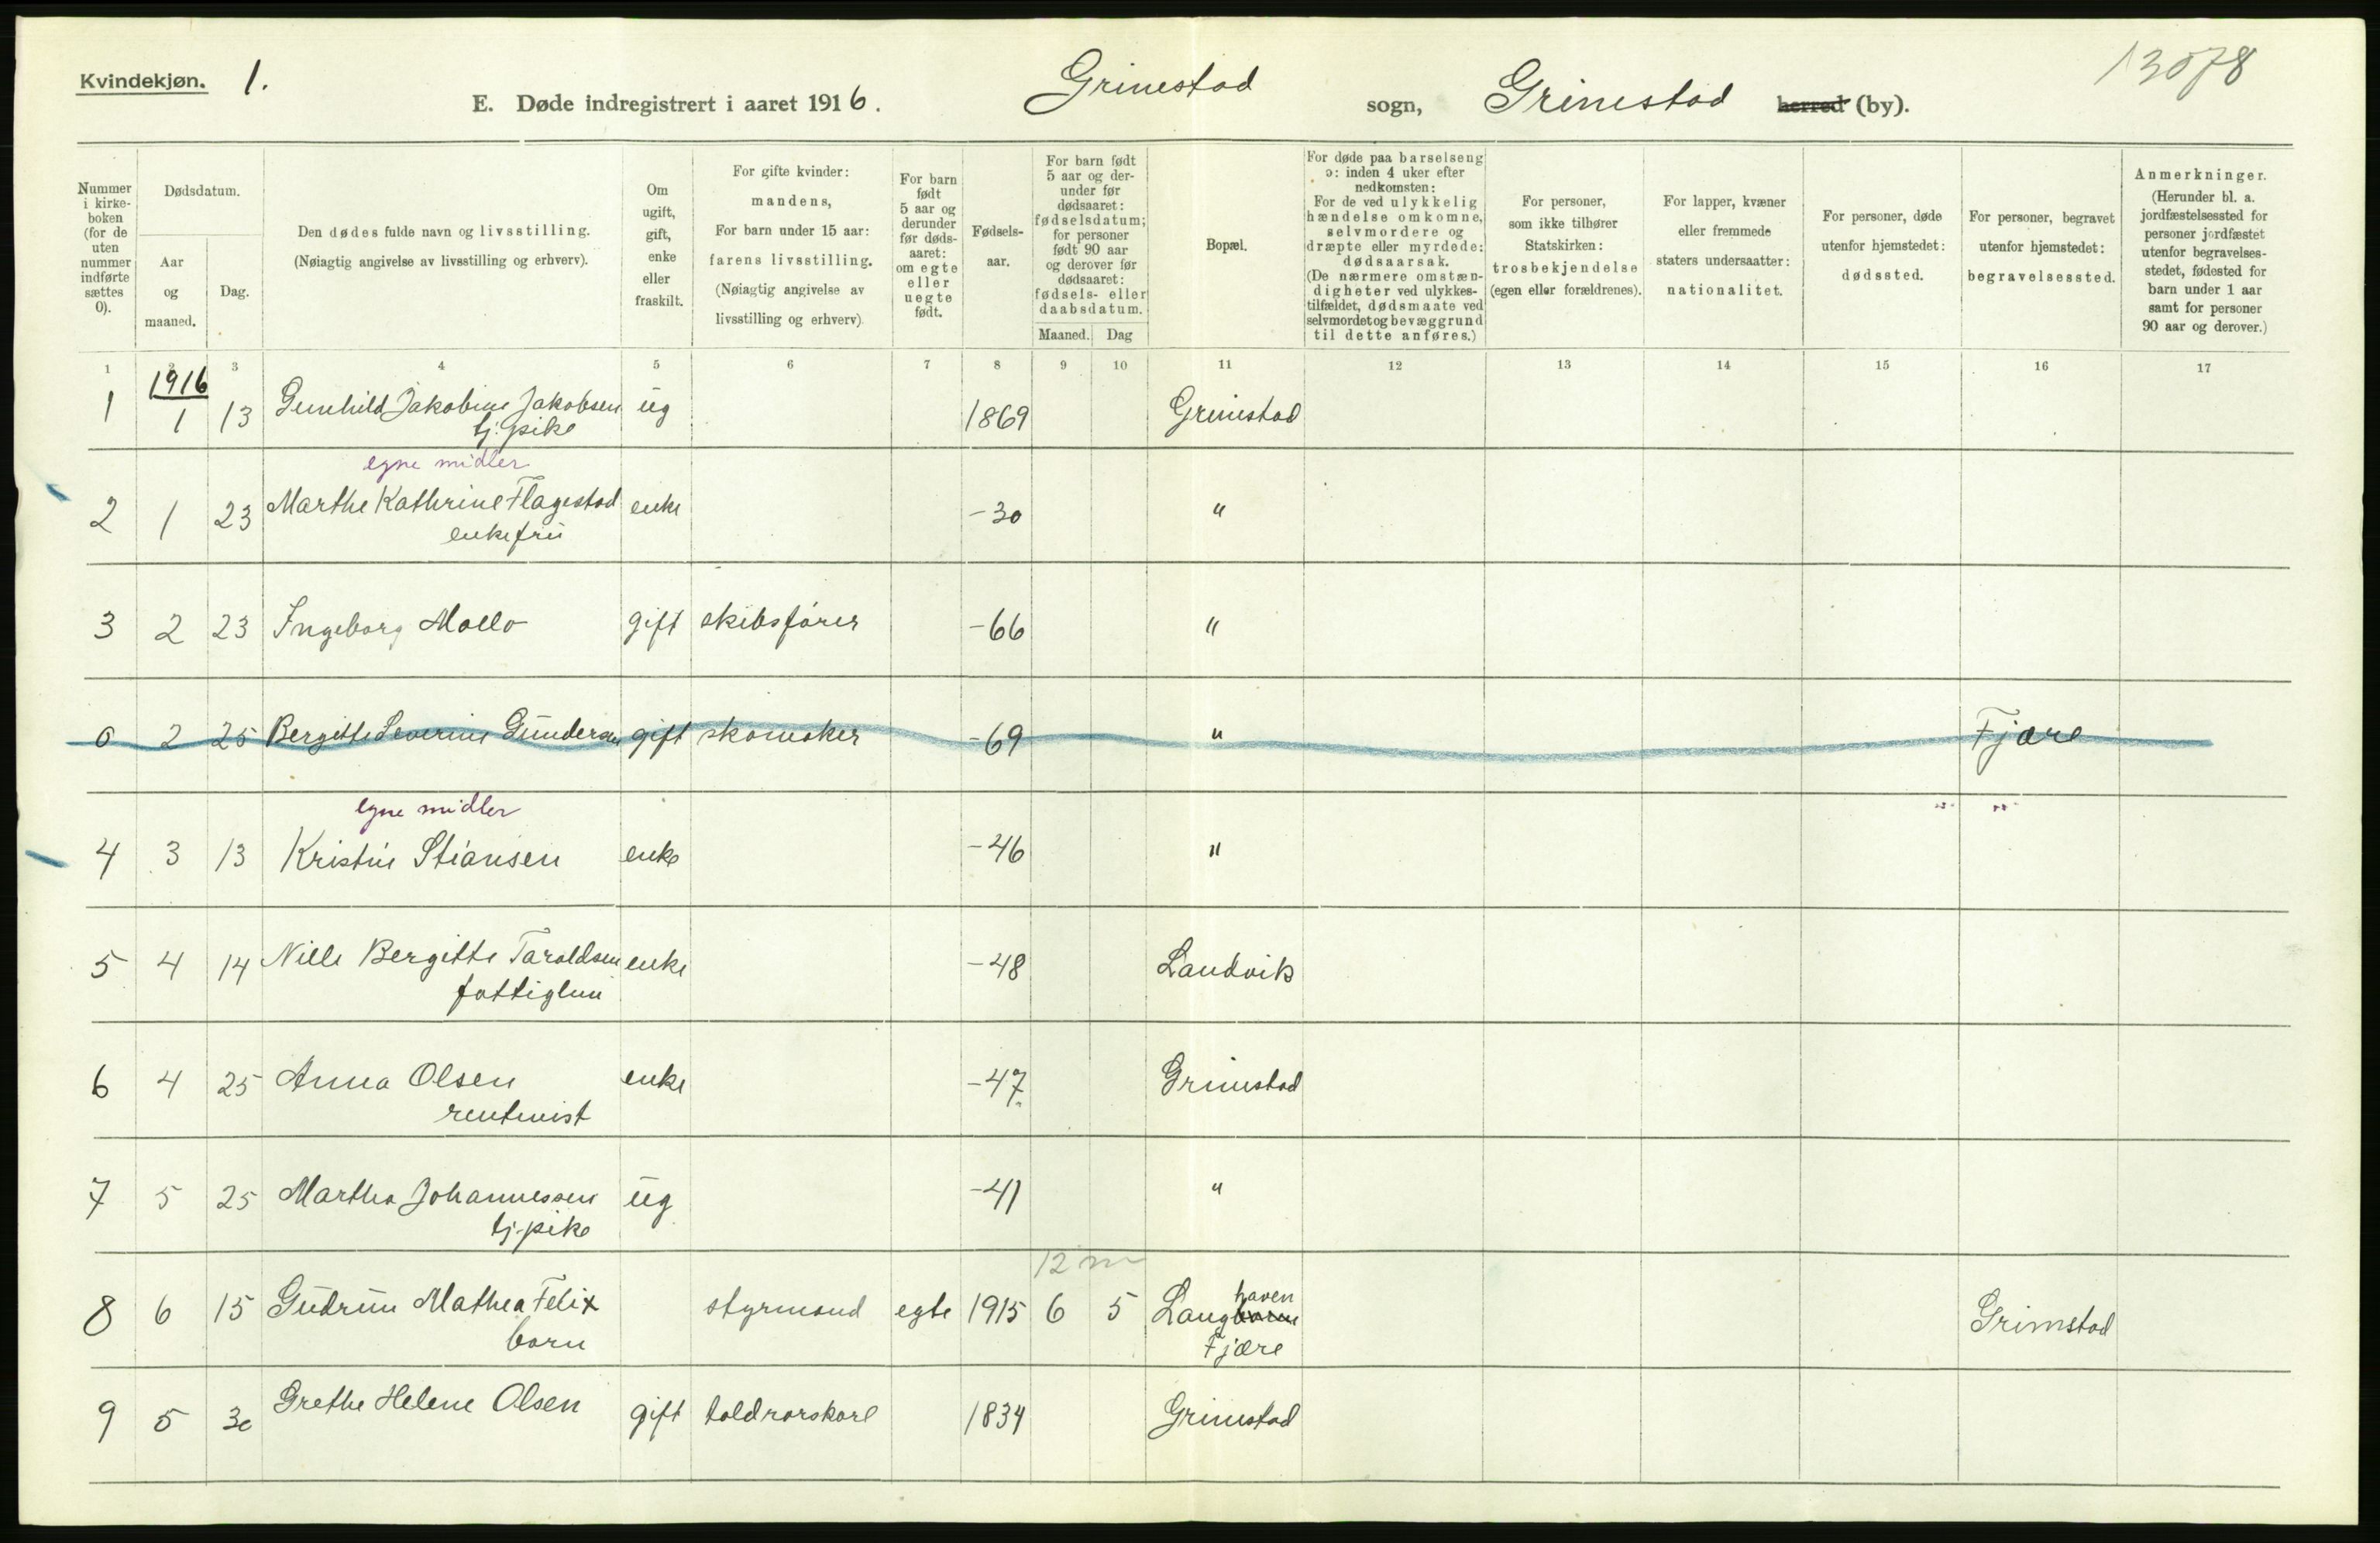 Kvindekjøn. 1.
E. Døde indregistrert i aaret 1916. Grimestad sogn, Grimestad herred (by).
13078
Nummer i kirke-boken (for de uten nummer indførte sættes 0).
Dødsdatum.
Aar og maaned.
Dag.
Den dødes fulde navn og livsstilling.
(Nøiagtig angivelse av livsstilling og erhverv).
Om ugift, gift, enke eller fraskilt.
For gifte kvinder: mandens,
For barn under 15 aar: farens livsstilling.
(Nøiagtig angivelse av livsstilling og erhverv).
For barn født 5 aar og derunder før døds-aaret: om egte eller uegte født.
Fødsels-aar.
For barn født 5 aar og der-under før dødsaaret: fødselsdatum; for personer født 90 aar og derover før dødsaaret: fødsels- eller daabsdatum.
Maaned. Dag
Bopæl.
For døde paa barselseng ɔ: inden 4 uker efter nedkomsten:
For de ved ulykkelig hændelse omkomne, selvmordere og dræpte eller myrdede: dødsaarsak.
(De nærmere omstæn-digheter ved ulykkes-tilfældet, dødsmaate ved selvmordet og bevæggrund til dette anføres.)
For personer, som ikke tilhører Statskirken: trosbekjendelse (egen eller forældrenes).
For lapper, kvæner eller fremmede staters undersaatter: nationalitet.
For personer, døde utenfor hjemstedet: dødssted.
For personer, begravet utenfor hjemstedet: begravelsessted.
Anmerkninger.
(Herunder bl. a. jordfæstelsessted for personer jordfæstet utenfor begravelses-stedet, fødested for barn under 1 aar samt for personer 90 aar og derover.)
1 2 3 4 5 6 7 8 9 10 11 12 13 14 15 16 17
1916
1 1 13 Gunhild Jakobine Jakobsen ug 1869 Grimestad
tj. pike
egne midler
2 1 23 Marthe Kathrine Flagestad enke -30 "
enkefru
3 2 23 Ingeborg Møllo gift skibsfører -66 "
0 2 25 Bergitte Severine Gundersen gift skomaker -69 " Fjære
egne midler
4 3 13 Kristine Stiansen enke -46 "
5 4 14 Nille Bergitte Taraldsen enke -48 Landvik
fattiglem
6 4 25 Anna Olsen enke -47 Grimstad
rentenist
7 5 25 Martha Johannessen ug -41 "
tj. pike
12 m
8 6 15 Gudrun Mathea Felix styrmand egte 1915 6 5 Langhaven Grimstad
barn Fjære
9 5 30 Grethe Helene Olsen gift toldrorskarl 1834 Grimstad